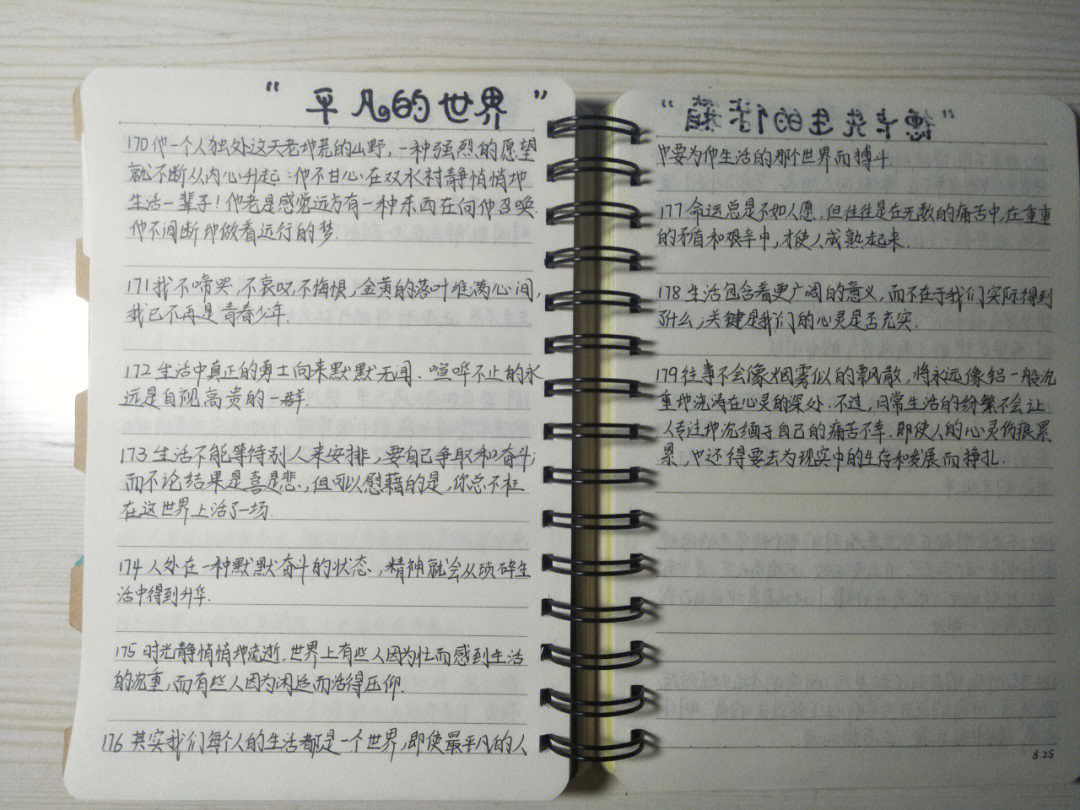 “平凡的世界”
170 他一个人独处这天老地荒的山野，一种强烈的愿望
就不断从内心升起：他不甘心在双水村静悄悄地
生活一辈子！他老是感觉远方有一种东西在向他召唤.
他不间断地做着远行的梦.
171 我不啼哭,不哀叹,不悔恨,金黄的落叶堆满心间,
我已不再是青春少年.
172 生活中真正的勇士向来默默无闻.喧哗不止的永
远是自视高贵的一群.
173 生活不能等待别人来安排,要自己争取和奋斗;
而不论结果是喜是悲,但可以慰藉的是,你总不枉
在这世界上活了一场.
174 人处在一种默默奋斗的状态,精神就会从琐碎生
活中得到升华.
175 时光静悄悄地流逝.世界上有些人因为忙而感到生活
的沉重,而有些人因为闲适而活得压抑.
176 其实我们每个人的生活都是一个世界,即使最平凡的人
也要为他生活的那个世界而搏斗.
177 命运总是不如人愿.但往往是在无数的痛苦中,在重重
的矛盾和艰辛中,才使人成熟起来.
178 生活包含着更广阔的意义,而不在于我们实际得到
了什么,关键是我们的心灵是否充实.
179 往事不会像烟雾似的飘散,将永远像铅一般沉
重地浇铸在心灵的深处.不过,日常生活的纷繁不会让
人专注地沉缅于自己的痛苦不幸.即使人的心灵伤痕累
累,也还得要去为现实中的生存和发展而挣扎.
8.25